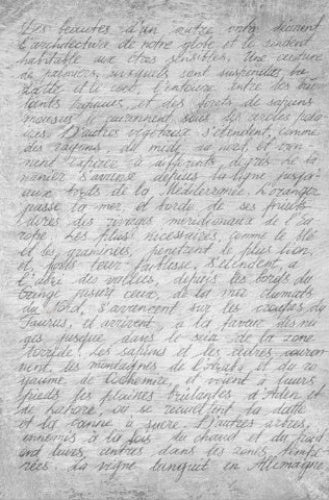 Les beautés d'un autre ordre décorent
l'architecture de notre globe et le rendent
habitable aux êtres sensibles. Une ceinture
de palmiers, auxquels sont suspendues la
datte et le coco, l'entoure entre les
tropiques, et des forêts de sapins
mousseux le couronnent sous les cercles polai-
res. D'autres végétaux s'étendent, comme
des rayons, du midi au nord, et
à différents degrés. Le
bananier s'avance depuis la ligne jusqu'
aux bords de la Méditerranée. L'oranger
passe la mer, et borde de ses fruits
dorés des rivages méridionaux de l'Eu
rope. Les plus nécessaires, comme le blé
et les graminées, pénètrent le plus loin,
et forts de leur faiblesse, s'étendent, à
l'abri des vallées, depuis les bords du
Gange jusqu'à ceux de la mer
du Nord, s'avancent sur les croupes du
Taurus, et arrivent, à la faveur des nei
ges jusque dans le sein de la zone
torride. Les sapins et les cèdres couron
nent les montagnes de l'Arabie et du ro
yaume de Cachemire, et voient à leurs
pieds les plaines brûlantes d'Aden et
de Lahore, où se recueillent la datte
et la canne à sucre. D'autres arbres,
ennemis à la fois du chaud et du froid
ont leurs centres dans les zones tempé
rées. La vigne languit en Allemagne